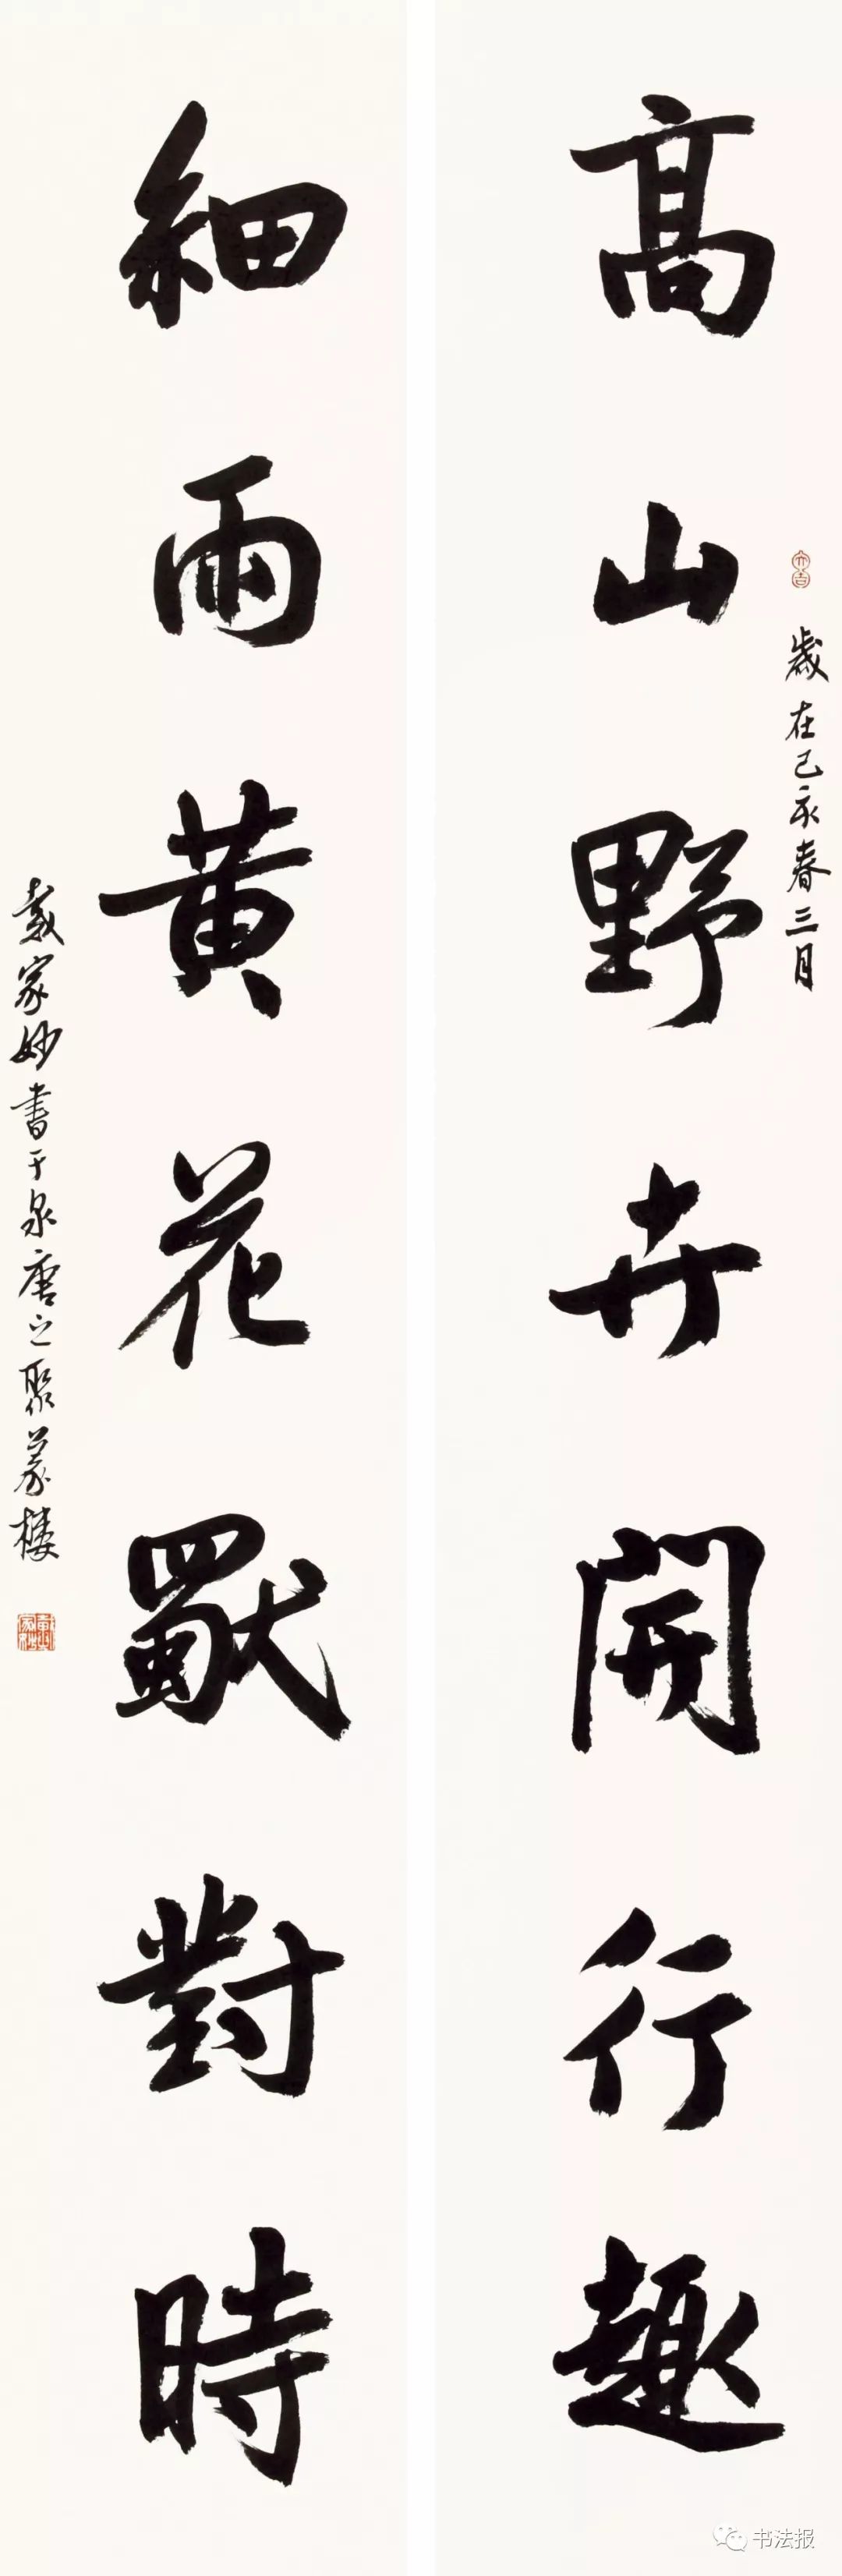 大吉
歲在己亥春三月
高山野卉開行趣
細雨黄花獨對時
戴家妙書于泉唐之聚樓
书法报